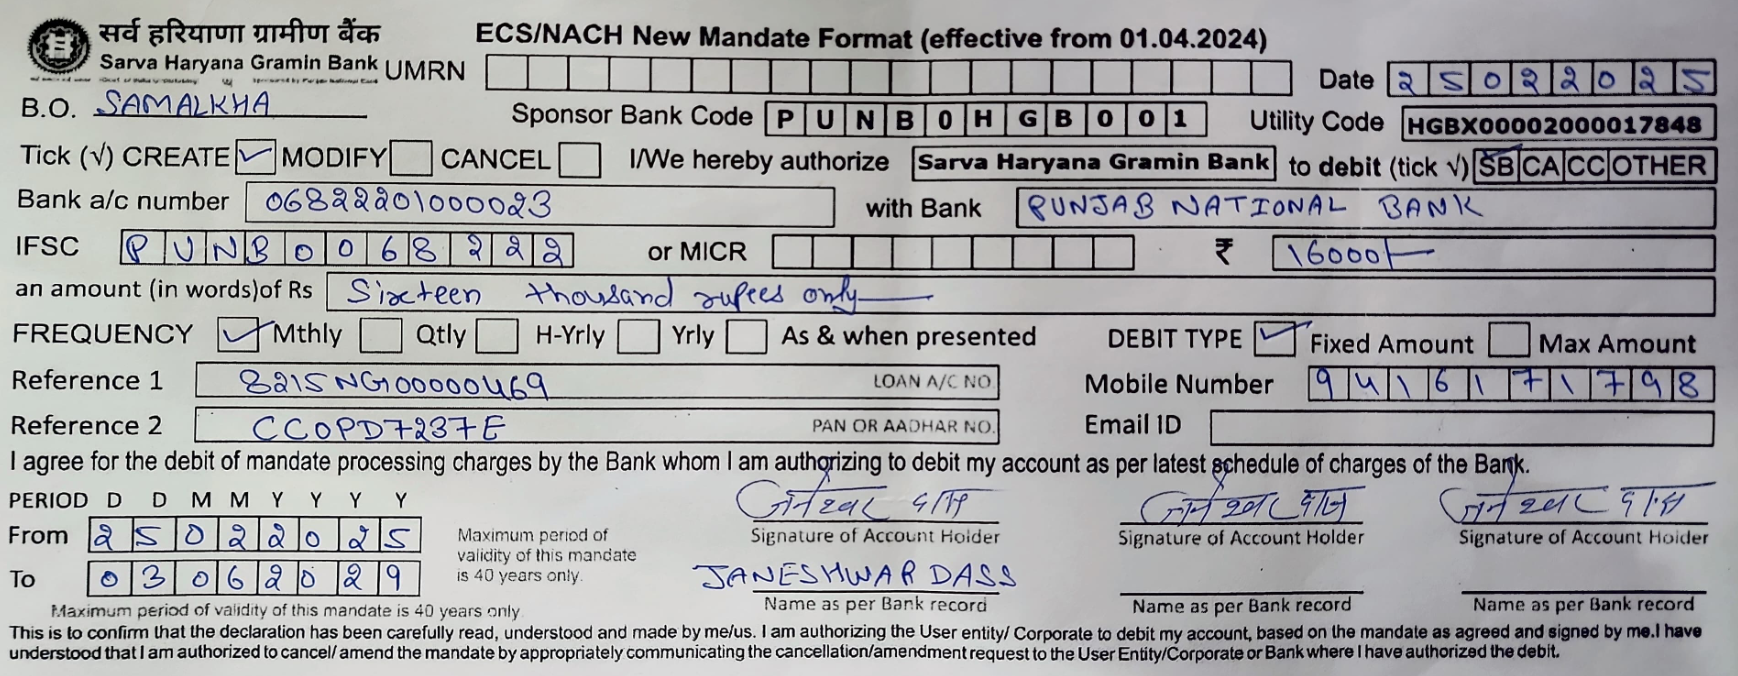 सर्व हरियाणा ग्रामीण बैंक
Sarva Haryana Gramin Bank
ECS/NACH New Mandate Format (effective from 01.04.2024)
UMRN Date 25022025
B.O. SAMALKHA Sponsor Bank Code PUNB0HGB001 Utility Code HGBX00002000017848
Tick (√) CREATE ✓ MODIFY CANCEL I/We hereby authorize Sarva Haryana Gramin Bank to debit (tick √) SB CA CC OTHER
Bank a/c number 06822201000023 with Bank PUNJAB NATIONAL BANK
IFSC PUNB0068222 or MICR ₹ 16000/-
an amount (in words)of Rs Sixteen thousand rupees only
FREQUENCY ✓ Mthly Qtly H-Yrly Yrly As & when presented DEBIT TYPE ✓ Fixed Amount Max Amount
Reference 1 8215NG00000469 LOAN A/C NO. Mobile Number 9416171798
Reference 2 CCOPD7237E PAN OR AADHAR NO. Email ID
I agree for the debit of mandate processing charges by the Bank whom I am authorizing to debit my account as per latest schedule of charges of the Bank.
PERIOD D D M M Y Y Y Y
From 25022025
To 03062029
Maximum period of
validity of this mandate
is 40 years only.
Signature of Account Holder Signature of Account Holder Signature of Account Holder
JANESHWAR DASS
Name as per Bank record Name as per Bank record Name as per Bank record
Maximum period of validity of this mandate is 40 years only.
This is to confirm that the declaration has been carefully read, understood and made by me/us. I am authorizing the User entity/ Corporate to debit my account, based on the mandate as agreed and signed by me.I have
understood that I am authorized to cancel/ amend the mandate by appropriately communicating the cancellation/amendment request to the User Entity/Corporate or Bank where I have authorized the debit.